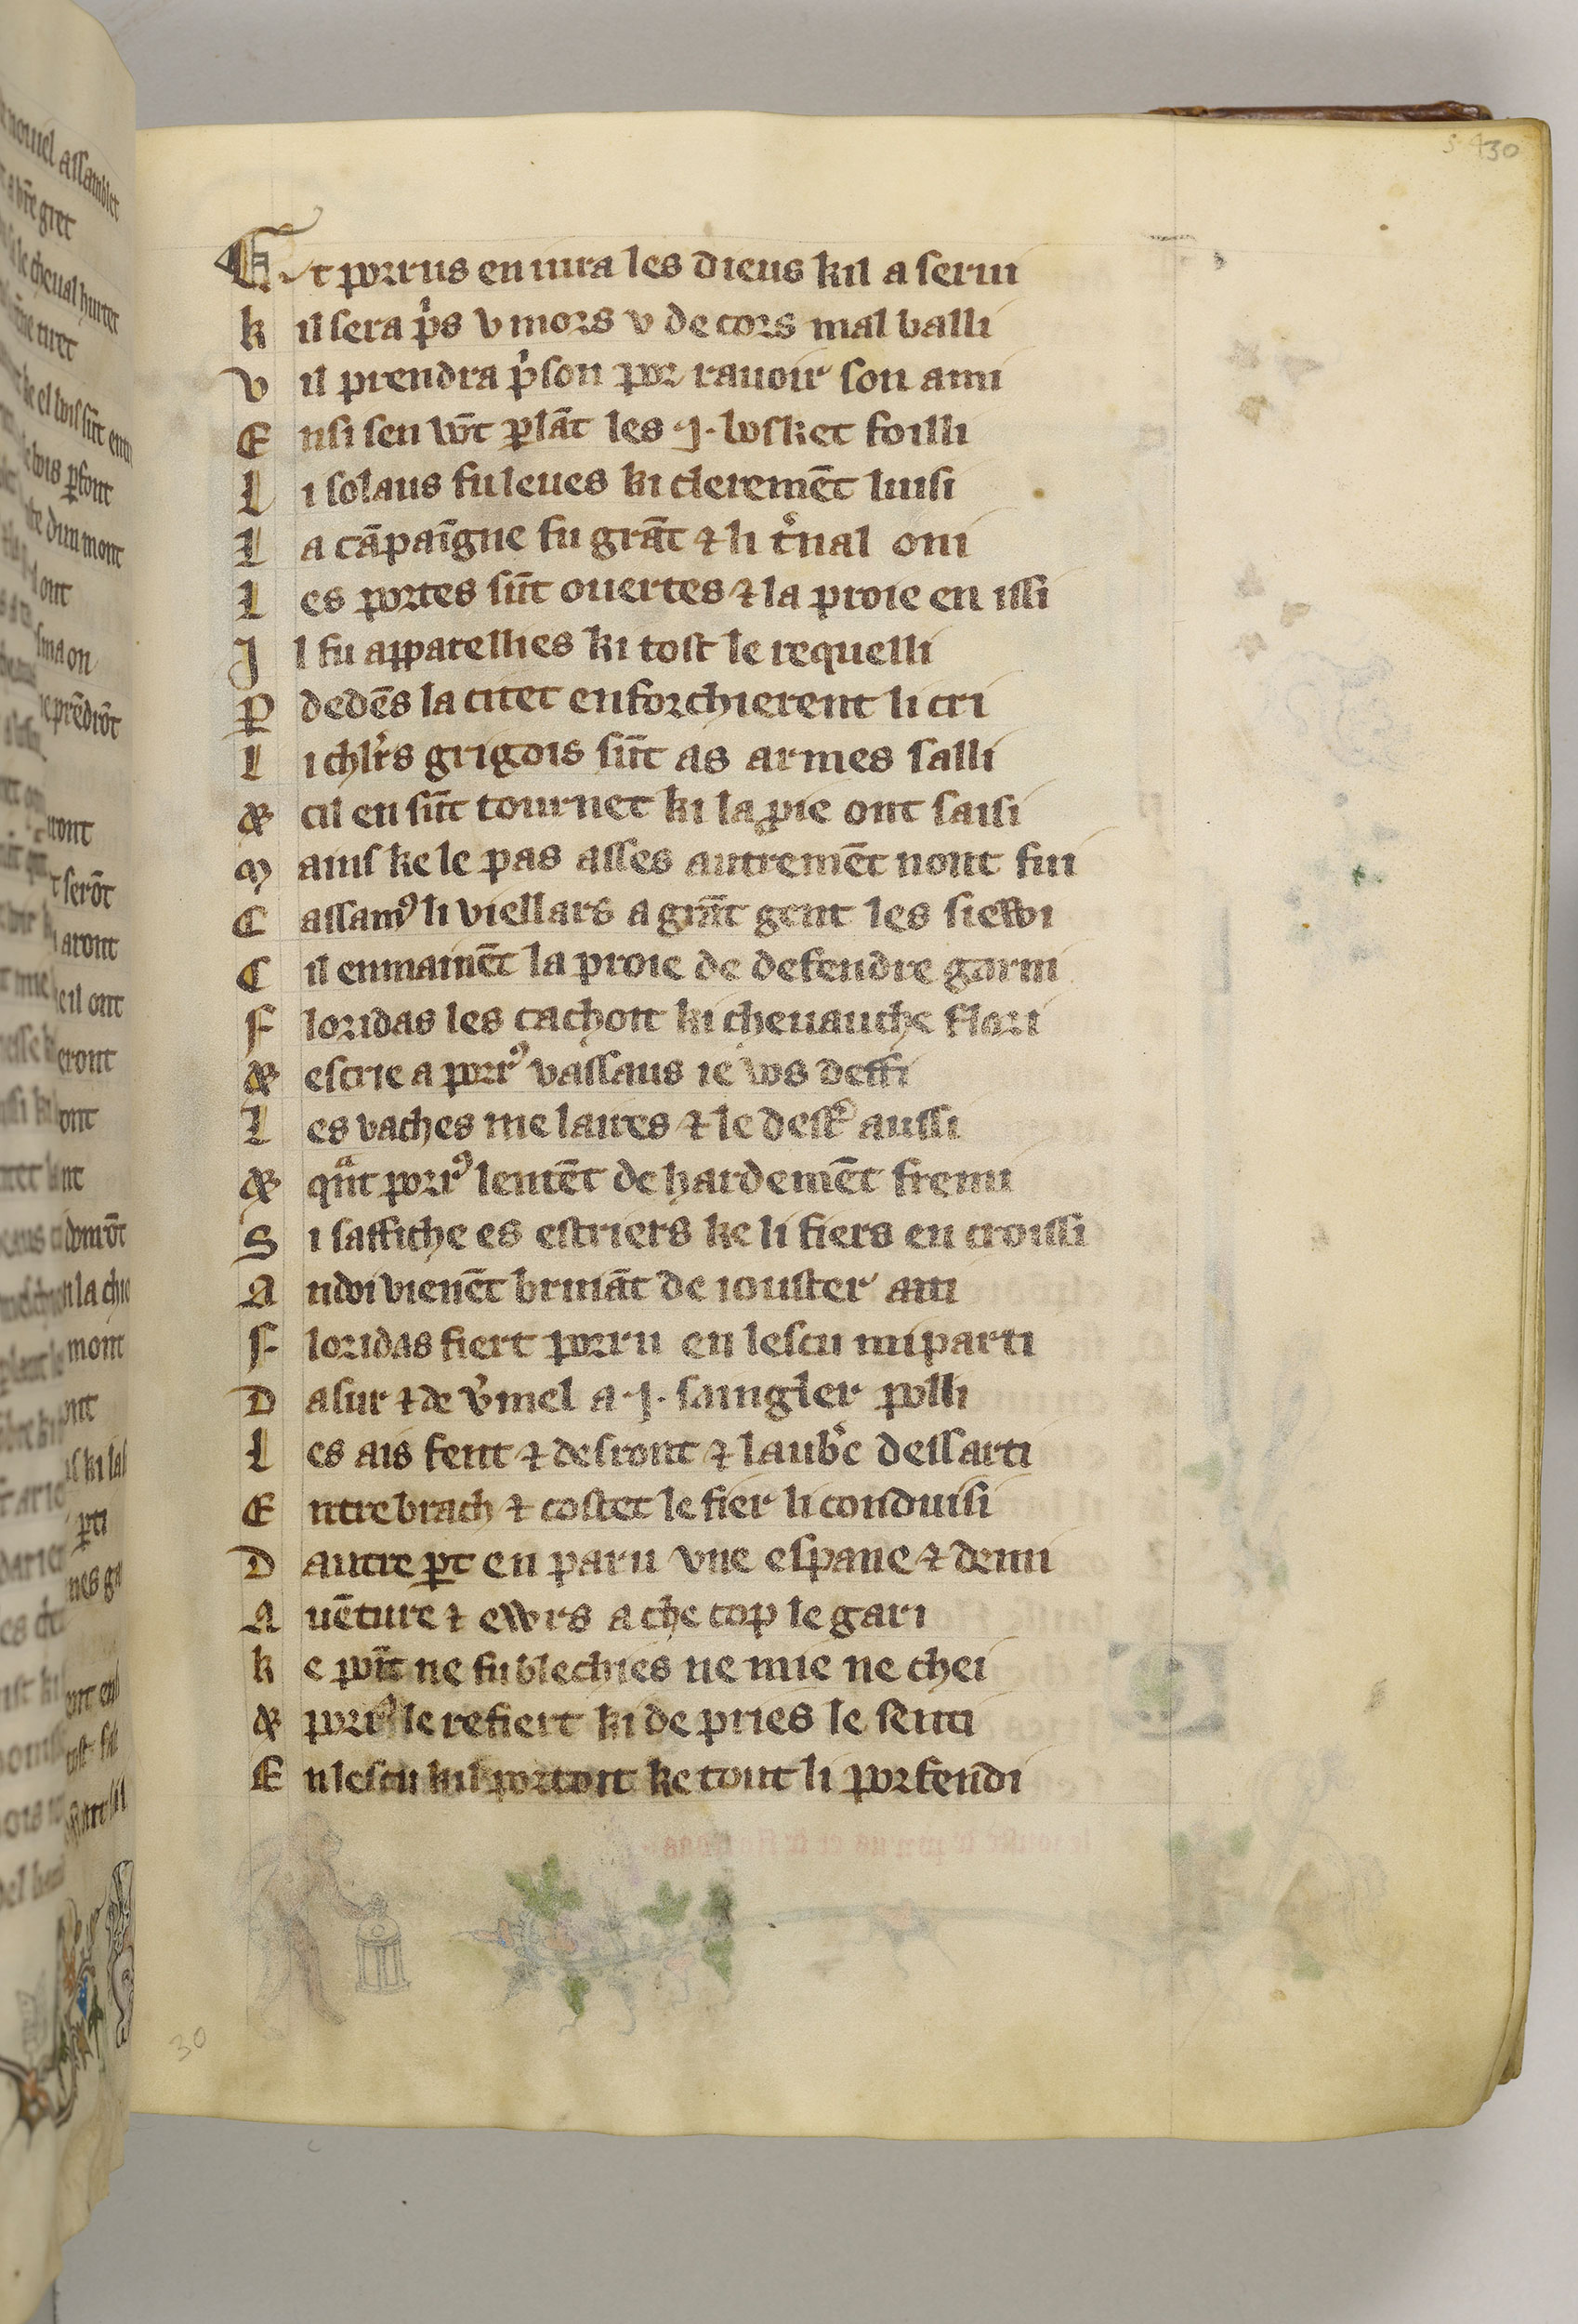 30
Et porrus en iura les dieus kil a serui
k il sera pͥs v mors v de cors mal balli
v il prendra pͥson por rauoir son ami
E nsi sen vōt ꝑlāt les .j. bosket foilli
L i solaus fu leues ki cleremēt luisi
L a cāpaīgne fu grāt ⁊ li tͬnal oni
L es portes sūt ouertes ⁊ la proie en issi
J l fu apparellies ki tost le requelli
P dedēs la citet enforchierent li cri
L i chlr̄s grigois sūt as armes salli
& cil en sūt tournet ki la ꝓie ont saisi
M ains ke le pas asses autremēt nont fui
C assamꝰ li viellars a grāt gent les siewi
C il enmainēt la proie de defendre garni
F loridas les cachoit ki cheuauche flori
& escrie a porrꝰ vassaus ie vos deffi
L es vaches me laires ⁊ le desc̄ aussi
& qᵃnt porrꝰ lentēt de hardemēt fremi
S i saffiche es estriers ke li fiers en croissi
A ndoi vienēt bruiāt de iouster ati
F loridas fiert porru en lescu miparti
D asur ⁊ de v̓mel a .j. saingler polli
L es ais fent ⁊ desront ⁊ laub̓c dessarti
E ntre brach ⁊ costet le fier li conduisi
D autre ꝑt en paru vne espane ⁊ demi
A uēture ⁊ ewrs a che cop le gari
k e poīt ne fu blechies ne mie ne chei
& porrꝰ le refiert ki de pries le senti
E n lescu kil portoit ke tout li porfendi
30